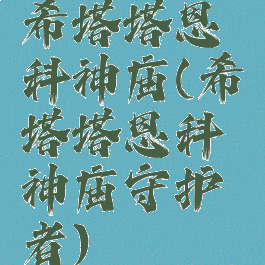 希塔塔恩
科神庙(希
塔塔恩科
神庙守护
者)